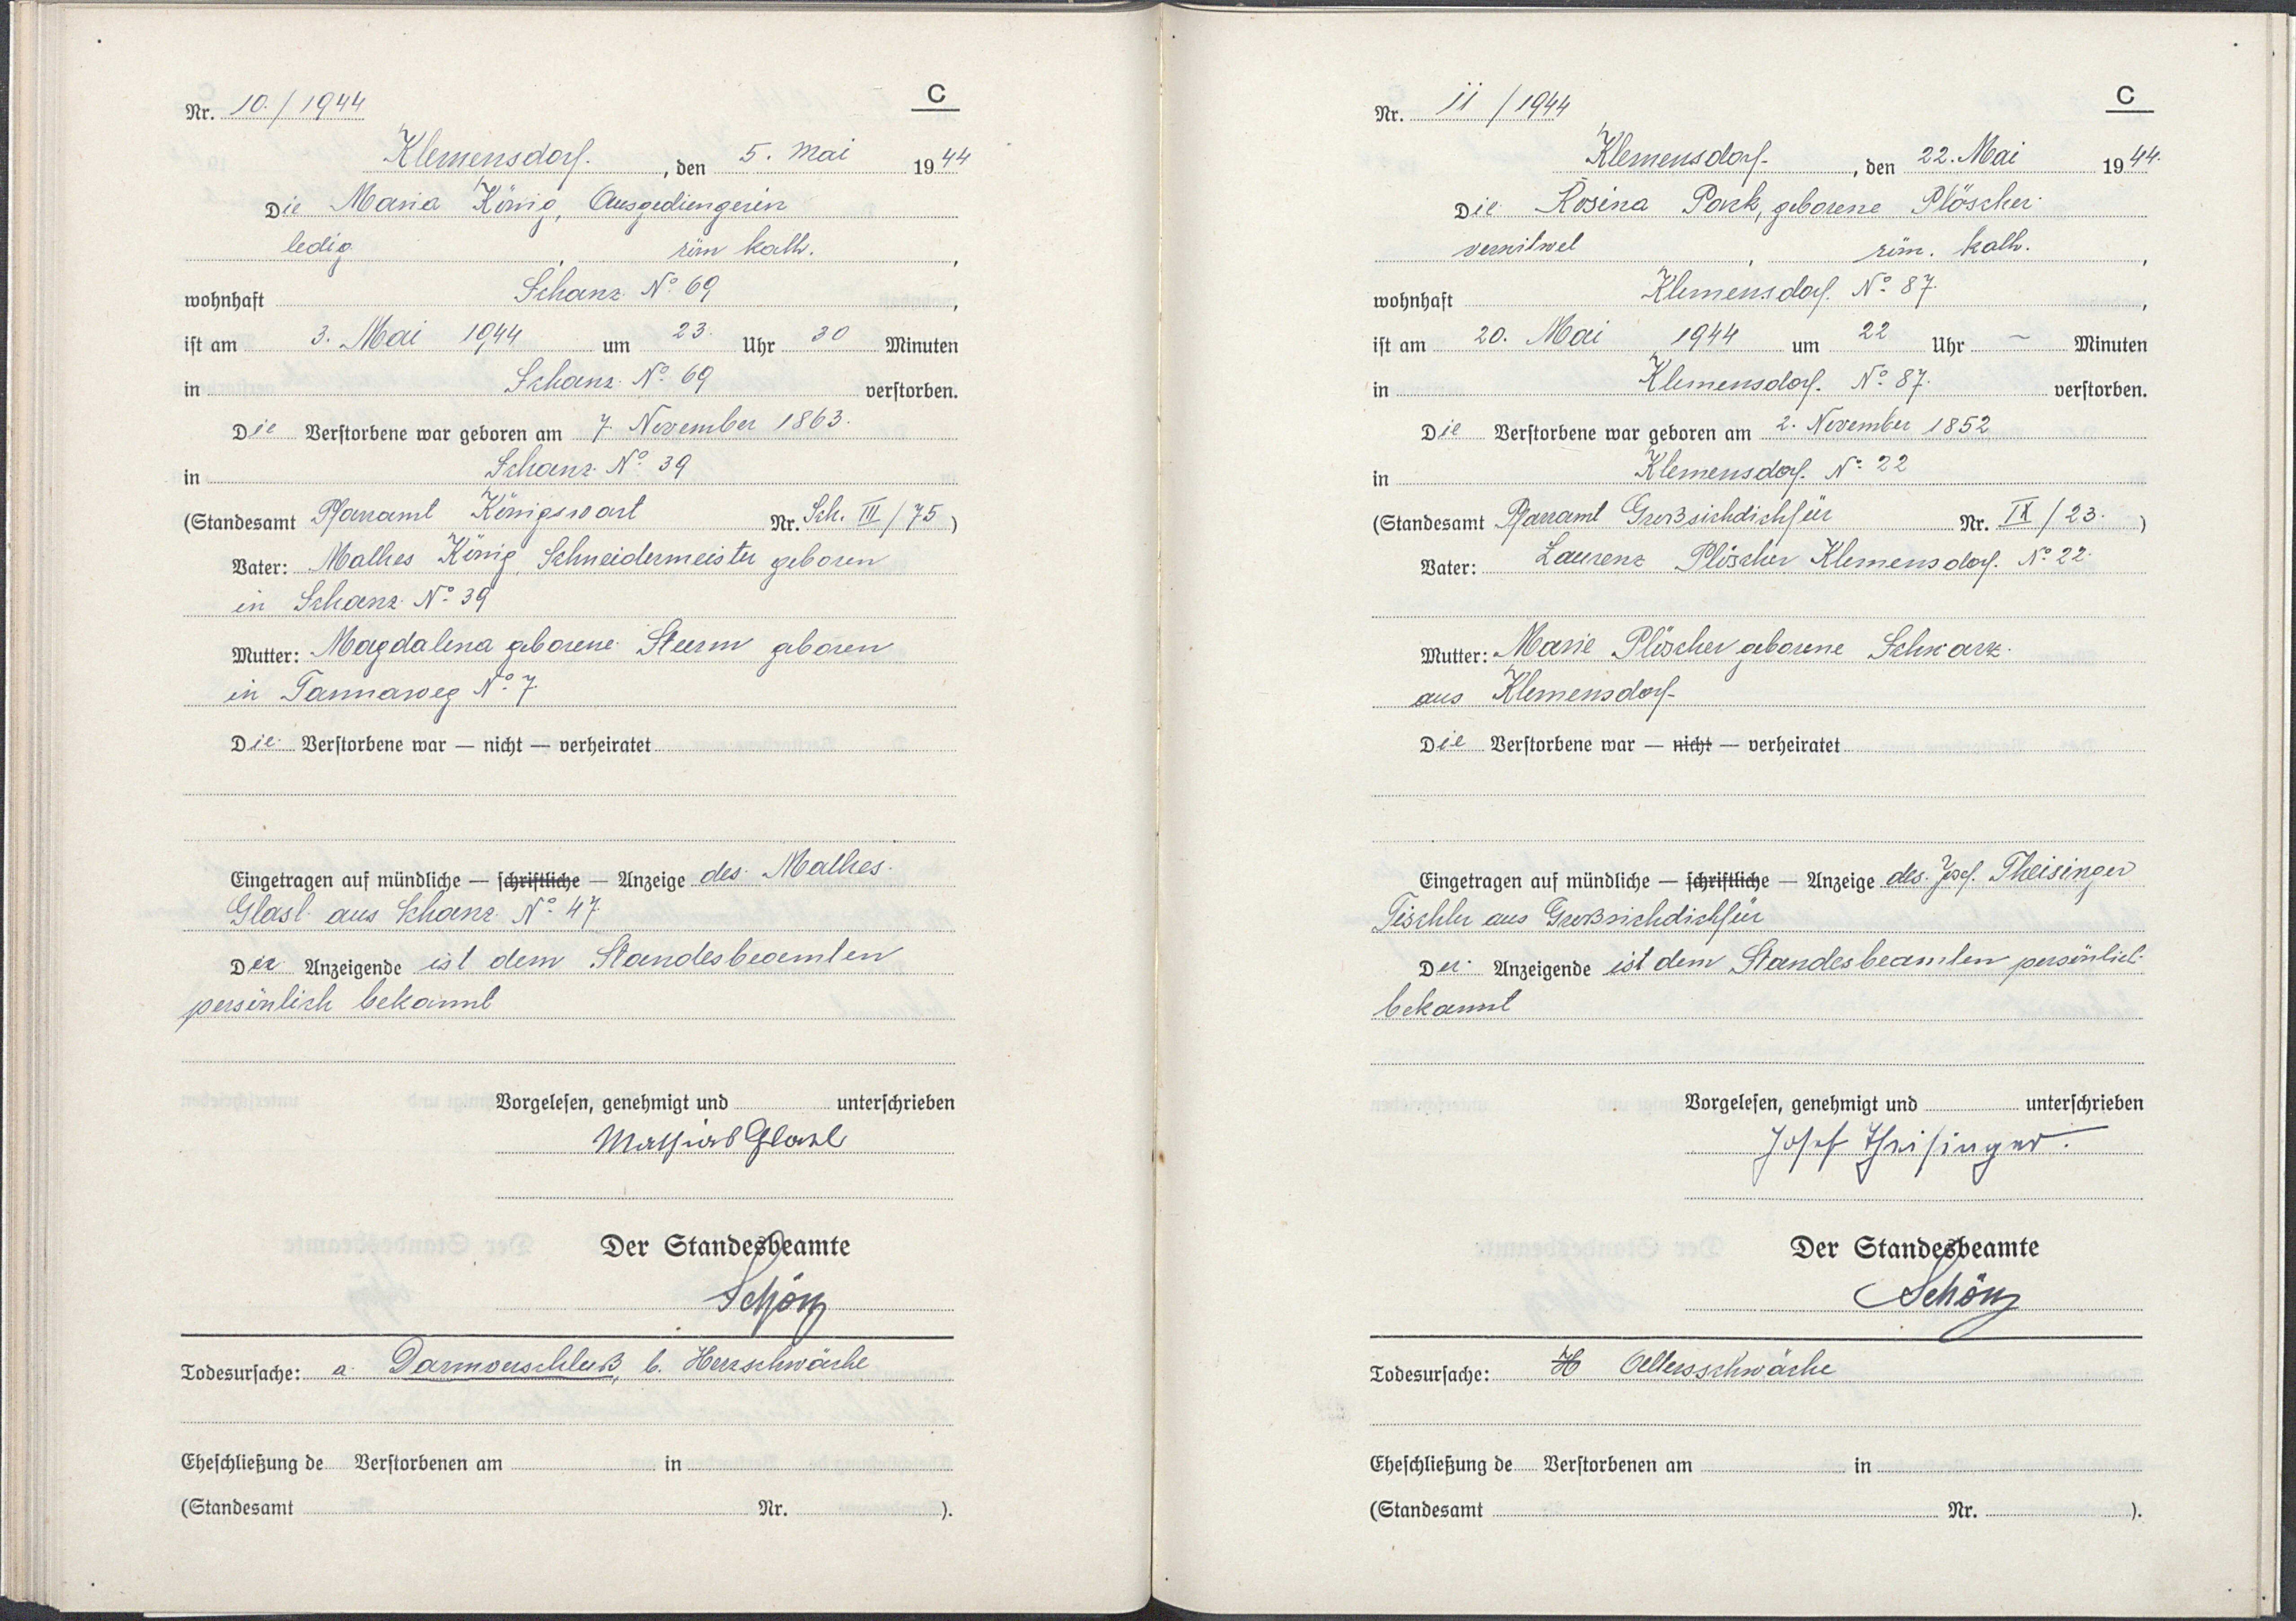 C
Nr. 10./1944
Klemensdorf, den 5. Mai 1944
Die Maria König, Ausgedingerin
ledig, röm kath.,
wohnhaft Schanz N° 69,
ist am 3. Mai 1944 um 23. Uhr 30 Minuten
in Schanz N° 69 verstorben.
Die Verstorbene war geboren am 7. November 1863.
in Schanz N° 39
(Standesamt Pfarramt Königswart Nr. Sch. III/75)
Vater: Mathes König, Schneidermeister geboren
in Schanz N° 39
Mutter: Magdalena geborene Sturm geboren
in Tannaweg N° 7.
Die Verstorbene war — nicht — verheiratet
Eingetragen auf mündliche — schriftliche — Anzeige des Mathes
Glasl aus Schanz N° 47.
Der Anzeigende ist dem Standesbeamten
persönlich bekannt
Vorgelesen, genehmigt und unterschrieben
Mathias Glasl
Der Standesbeamte
Schön
Todesursache: a. Darmverschluß, b. Herzschwäche
Eheschließung de Verstorbenen am in
(Standesamt Nr. ).
C
Nr. 11/1944
Klemensdorf, den 22. Mai 1944.
Die Rosina Pork, geborene Plöscher
verwitwet, röm. kath.,
wohnhaft Klemensdorf N° 87.,
ist am 20. Mai 1944 um 22 Uhr – Minuten
in Klemensdorf N° 87. verstorben.
Die Verstorbene war geboren am 2. November 1852
in Klemensdorf N° 22
(Standesamt Pfarramt Großsichdichfür Nr. IX/23.)
Vater: Laurenz Plöscher Klemensdorf N° 22.
Mutter: Marie Plöscher geborene Schwarz
aus Klemensdorf
Die Verstorbene war — nicht — verheiratet
Eingetragen auf mündliche — schriftliche — Anzeige des Josef Theisinger
Tischler aus Großsichdichfür
Der Anzeigende ist dem Standesbeamten persönlich
bekannt
Vorgelesen, genehmigt und unterschrieben
Josef Theisinger.
Der Standesbeamte
Schön
Todesursache: H Altersschwäche
Eheschließung de Verstorbenen am in
(Standesamt Nr. ).